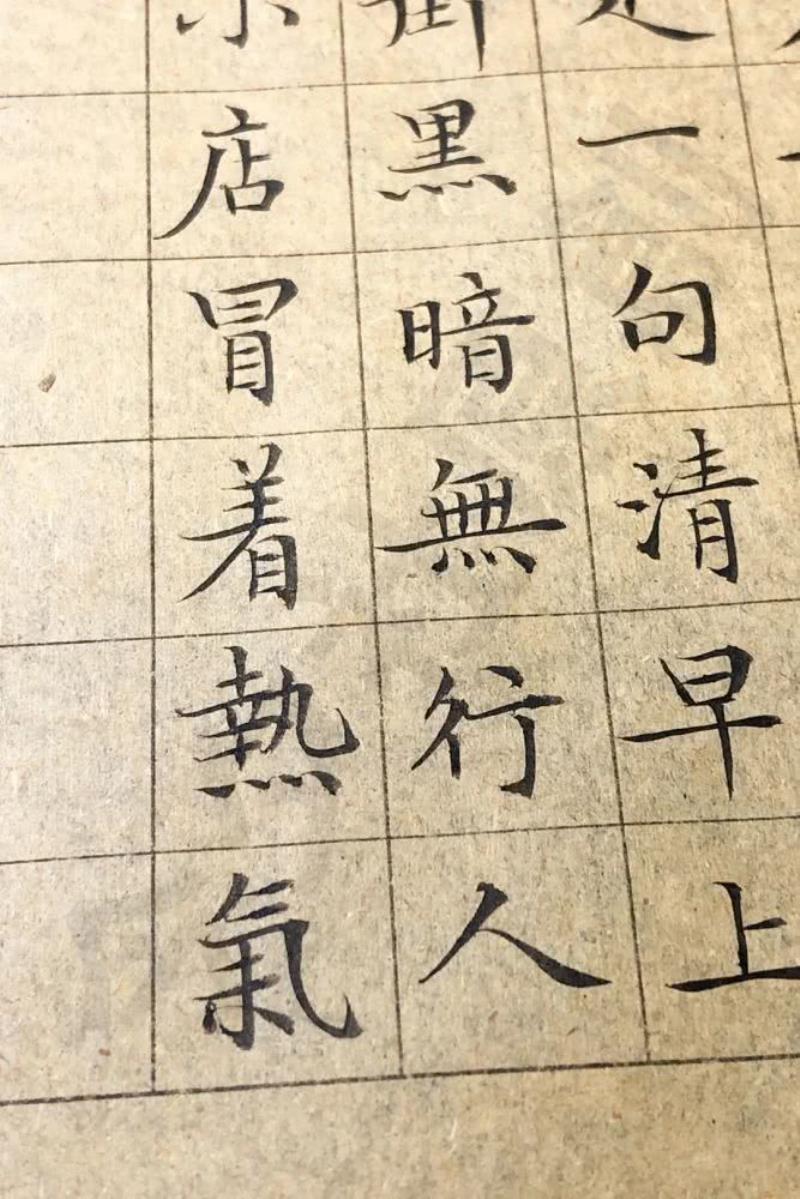 是一句清早上
街黑暗無行人
小店冒着熱氣